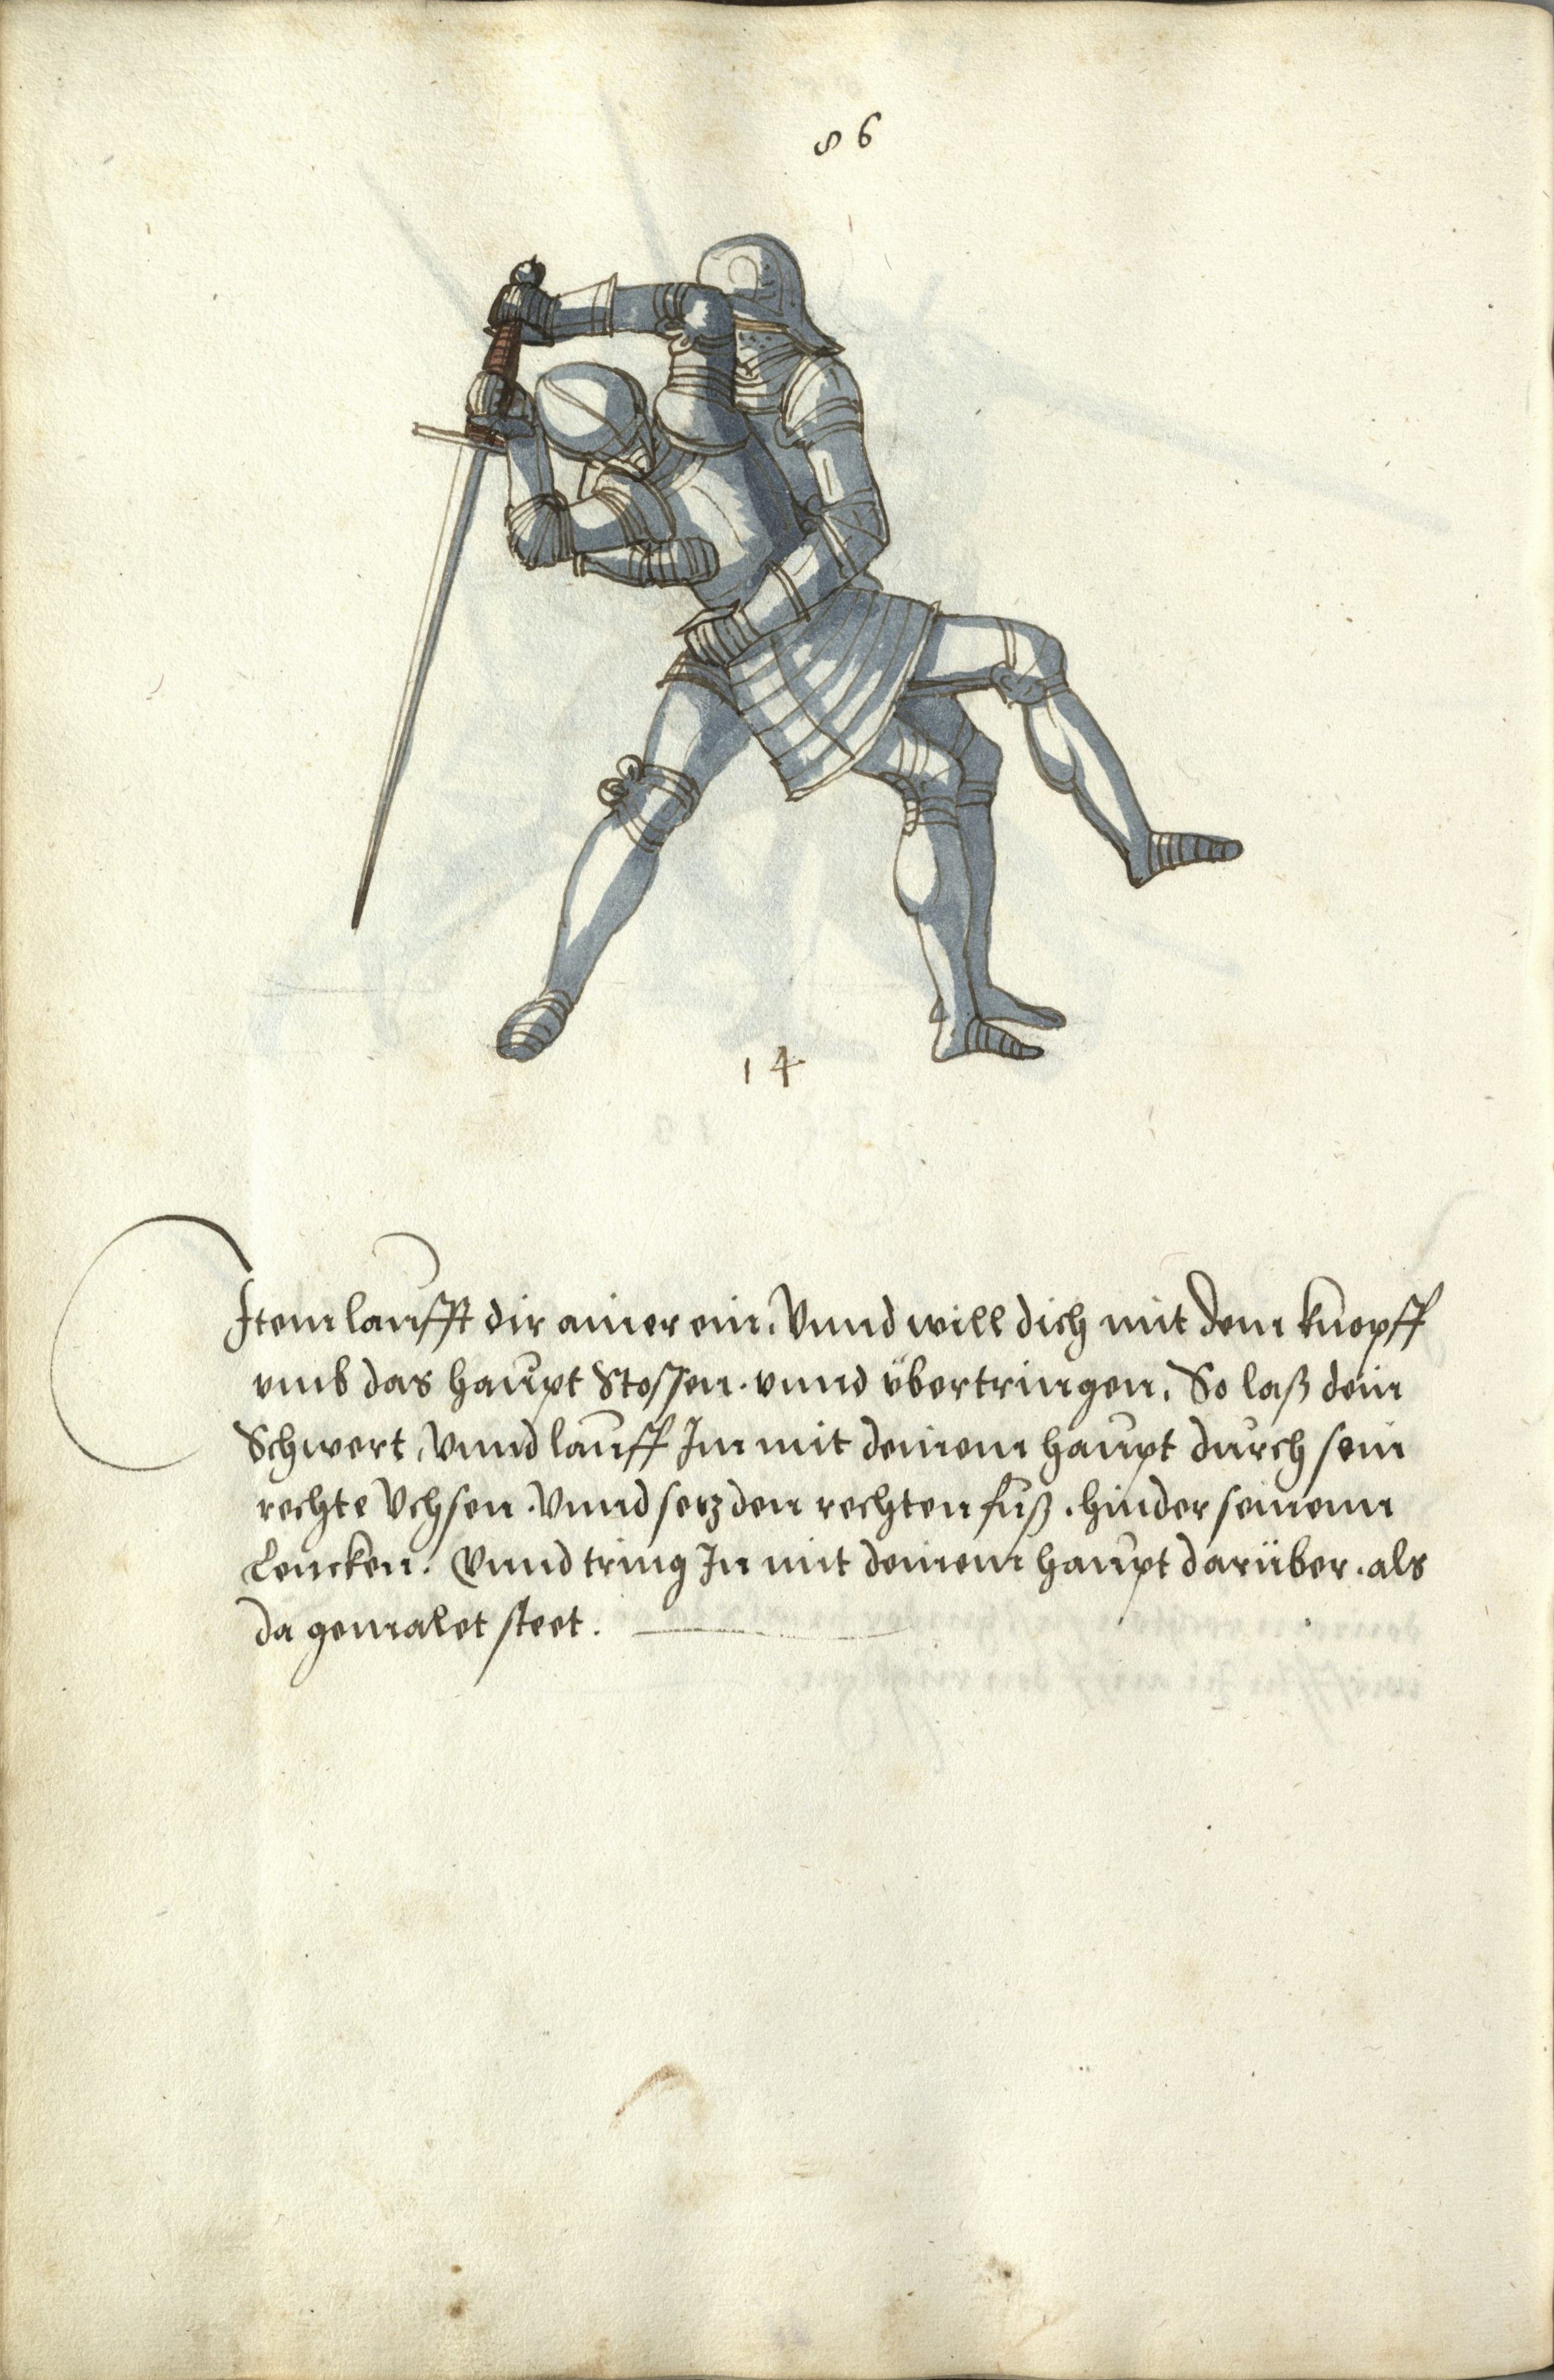 86
14
Item laufft dir ainer ein. Vnnd will dich mit dem knopff
vmb das haupt Stossen. vnnd übertringen. So laß dein
Schwert, Vnnd lauff Im mit deinem haupt durch sein
rechte Vchsen. Vnnd setz den rechten fuß. hinder seinem
Lencken. Vnnd tring In mit deinem haupt darüber. als
da gemalet steet.